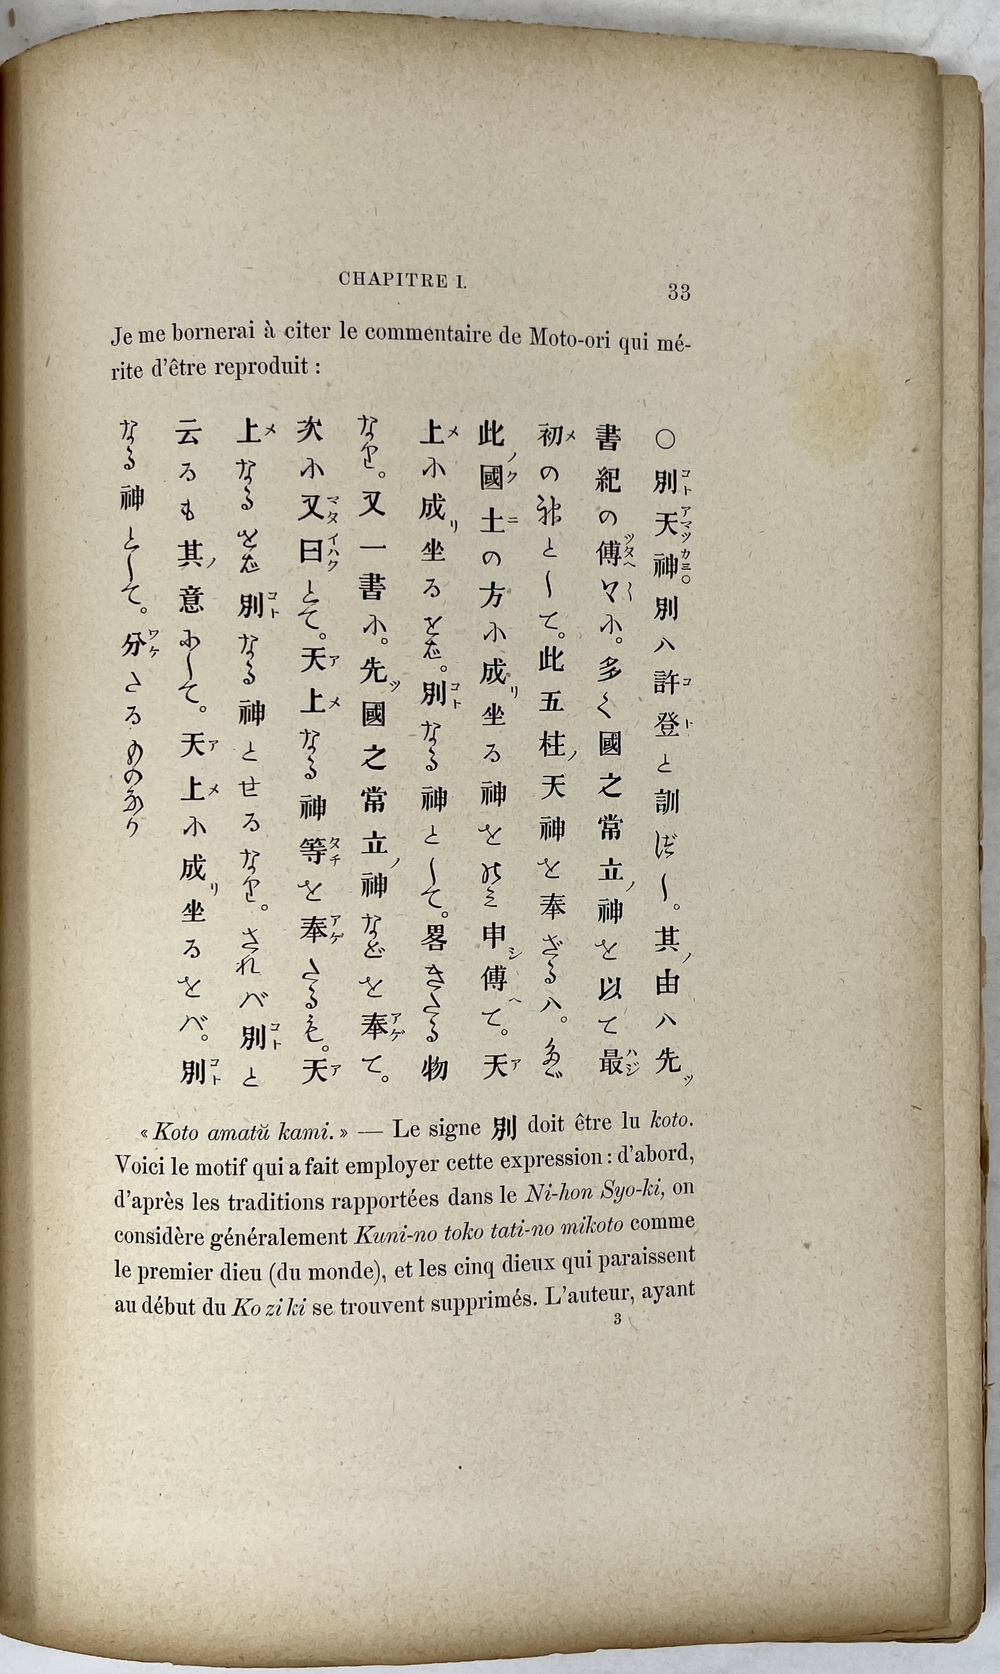 CHAPITRE I.
33
Je me bornerai à citer le commentaire de Moto-ori qui mé-
rite d'être reproduit :
○別天神。別ハ許登と訓べし。其ノ由ハ先ツ
書紀の傳〻に。多く國之常立ノ神を以て最
初の神として。此五柱ノ天神を奉ざるハ。
此ノ國土の方に成リ坐る神を申シ傳へて。天
上に成リ坐るをば。別なる神として。畧きたる物
なり。又一書に。先ツ國之常立ノ神などを奉て。
次に又曰とて。天上なる神等を奉たるも。天
上なるをば別なる神とせるなり。されバ別と
云るも其ノ意にして。天上に成リ坐るをバ。別
なる神として。分たるものなり
« Koto amatŭ kami. » — Le signe 別 doit être lu koto.
Voici le motif qui a fait employer cette expression : d'abord,
d'après les traditions rapportées dans le Ni-hon Syo-ki, on
considère généralement Kuni-no toko tati-no mikoto comme
le premier dieu (du monde), et les cinq dieux qui paraissent
au début du Ko zi ki se trouvent supprimés. L'auteur, ayant
3